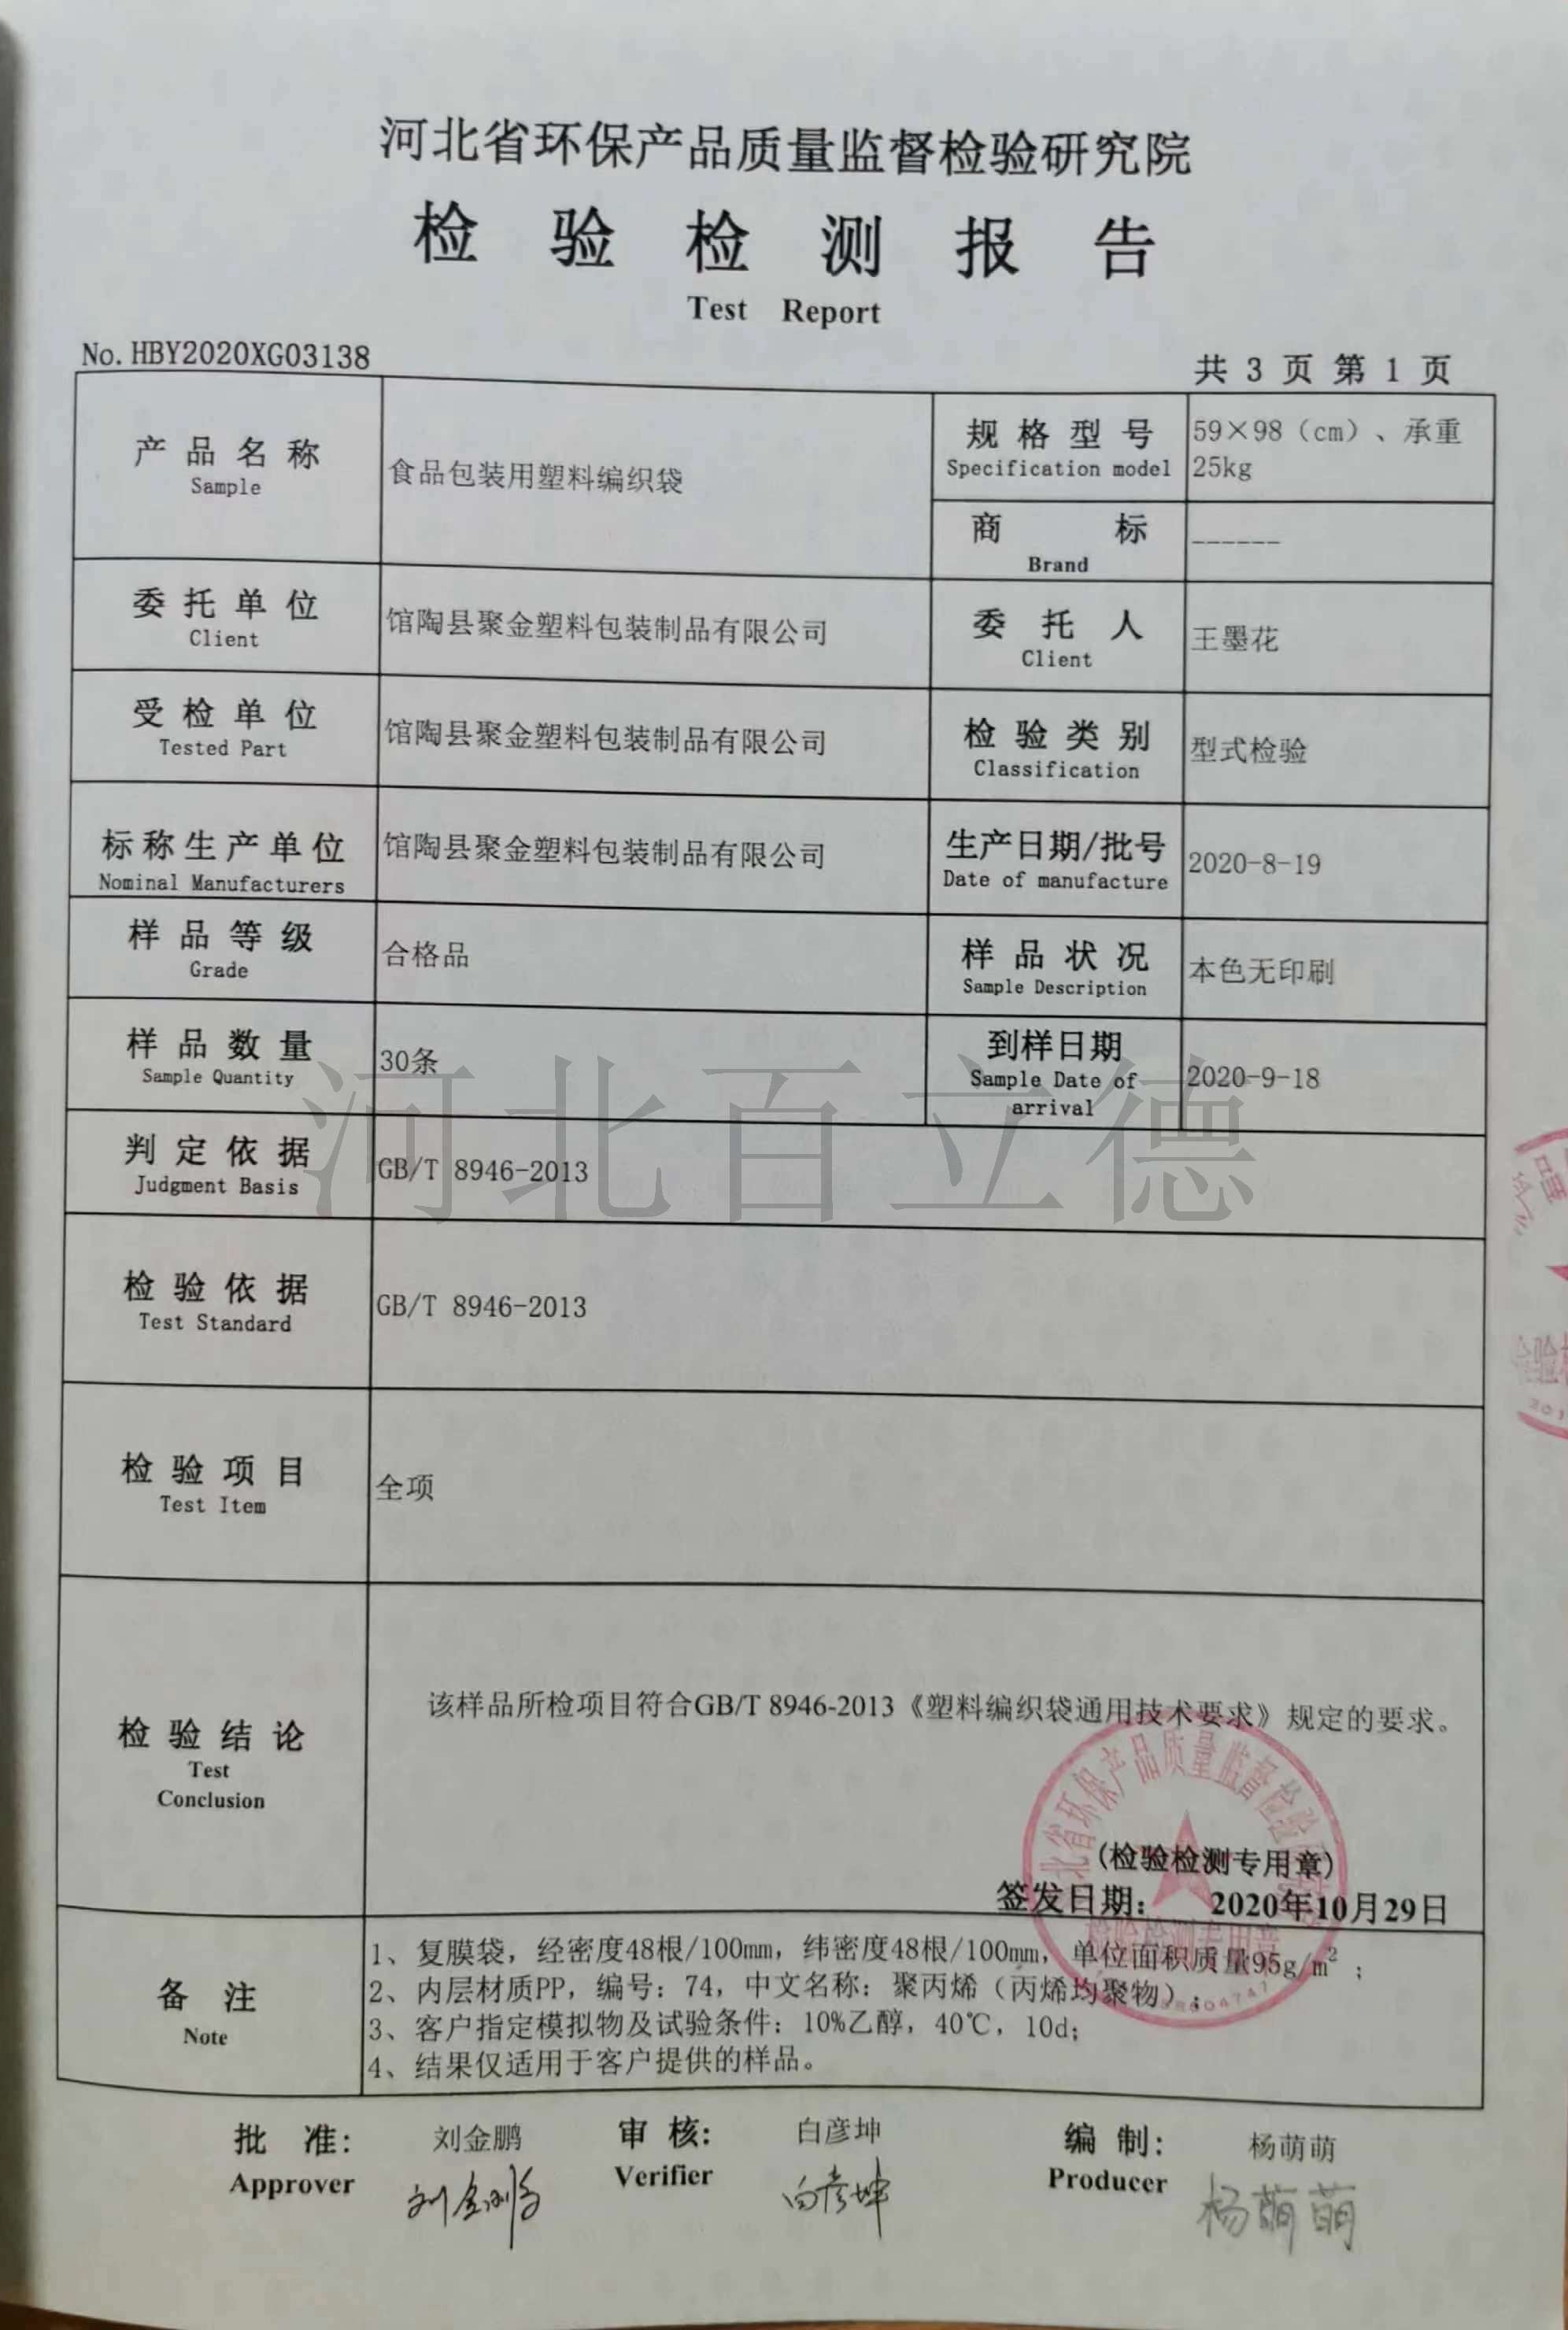 河北省环保产品质量监督检验研究院
检验检测报告
Test Report
No. HBY2020XG03138
共 3 页 第 1 页
产品名称
Sample
食品包装用塑料编织袋
规格型号
Specification model
59×98（cm）、承重
25kg
商标
Brand
------
委托单位
Client
馆陶县聚金塑料包装制品有限公司
委托人
Client
王墨花
受检单位
Tested Part
馆陶县聚金塑料包装制品有限公司
检验类别
Classification
型式检验
标称生产单位
Nominal Manufacturers
馆陶县聚金塑料包装制品有限公司
生产日期/批号
Date of manufacture
2020-8-19
样品等级
Grade
合格品
样品状况
Sample Description
本色无印刷
样品数量
Sample Quantity
30条
到样日期
Sample Date of
arrival
2020-9-18
河北百立德
判定依据
Judgment Basis
GB/T 8946-2013
检验依据
Test Standard
GB/T 8946-2013
检验项目
Test Item
全项
检验结论
Test
Conclusion
该样品所检项目符合GB/T 8946-2013《塑料编织袋通用技术要求》规定的要求。
(检验检测专用章)
签发日期： 2020年10月29日
北省环保产品质量监督检验
检验检测专用章
备注
Note
1、复膜袋，经密度48根/100mm，纬密度48根/100mm，单位面积质量95g/m²；
2、内层材质PP，编号：74，中文名称：聚丙烯（丙烯均聚物）；
3、客户指定模拟物及试验条件：10%乙醇，40℃，10d；
4、结果仅适用于客户提供的样品。
批准：
Approver
刘金鹏
刘金鹏
审核：
Verifier
白彦坤
白彦坤
编制：
Producer
杨萌萌
杨萌萌